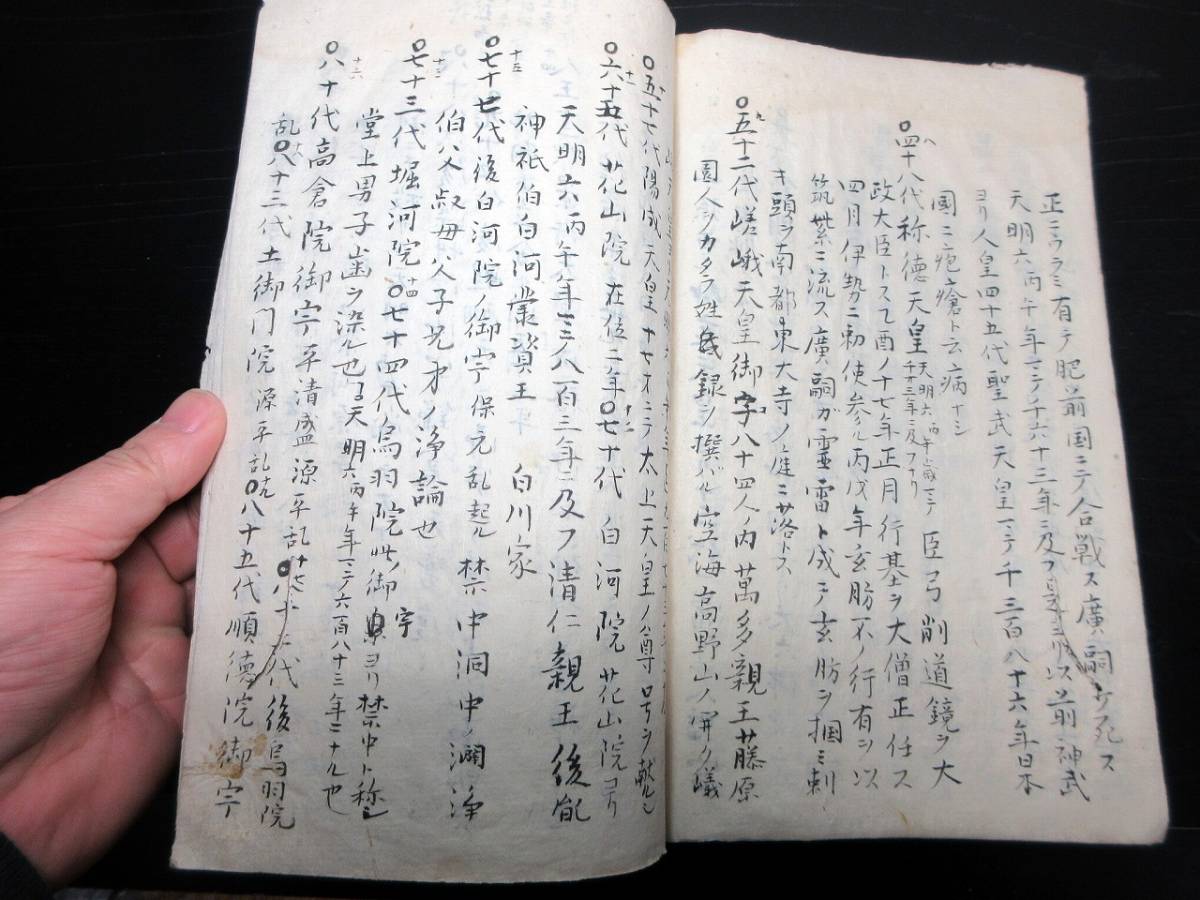 正ニウラミ有テ肥前国ニテ合戦ス廣嗣討死ス
天明六丙午年マテ千六十三年ニ及フ 以前神武
ヨリ人皇四十五代聖武天皇マテ千三百八十六年日本
国ニ疱瘡ト云病ナシ
八
〇四十八代称徳天皇 天明六丙午歳マテ千廿三年ニ及フナリ 臣弓削道鏡ヲ大
政大臣トス乙酉ノ十七年正月行基ヲ大僧正任ス
四月伊勢ニ勅使参ル丙戌年玄肪不ノ行有シ以
筑紫ニ流ス廣嗣ガ霊雷ト成テ玄肪ヲ掴ミ刺
キ頭ヲ南都東大寺ノ庭ニ落トス
九
〇五十二代嵯峨天皇御字八十四人ノ内萬多親王藤原
園人ヲカタラ姓氏録ヲ撰バル空海高野山ノ開ク議
〇五十七代陽成天皇十七才ニテ太上天皇ノ尊号ヲ献ル也
十一
〇六十五代花山院在位二年〇七十代白河院花山院ヨリ
天明六丙午年マテ八百三年ニ及フ清仁親王後胤
神祇伯白河叢資王 白川家
十五
〇七十七代後白河院ノ御宇保元乱起ル禁中洞中ノ瀾浄
伯父叔母父子兄弟ノ浄論也
十三
〇七十三代堀河院 十四 〇七十四代鳥羽院此御宇ヨリ禁中ト称シ
堂上男子歯ヲ染ル也 天明六丙午年マテ六百八十三年ニナル也
十六
〇八十代高倉院御宇平清盛源平乱 十七 〇八十二代後鳥羽院
乱 十八 〇八十三代土御門院源平乱 十九 〇八十五代順徳院御宇